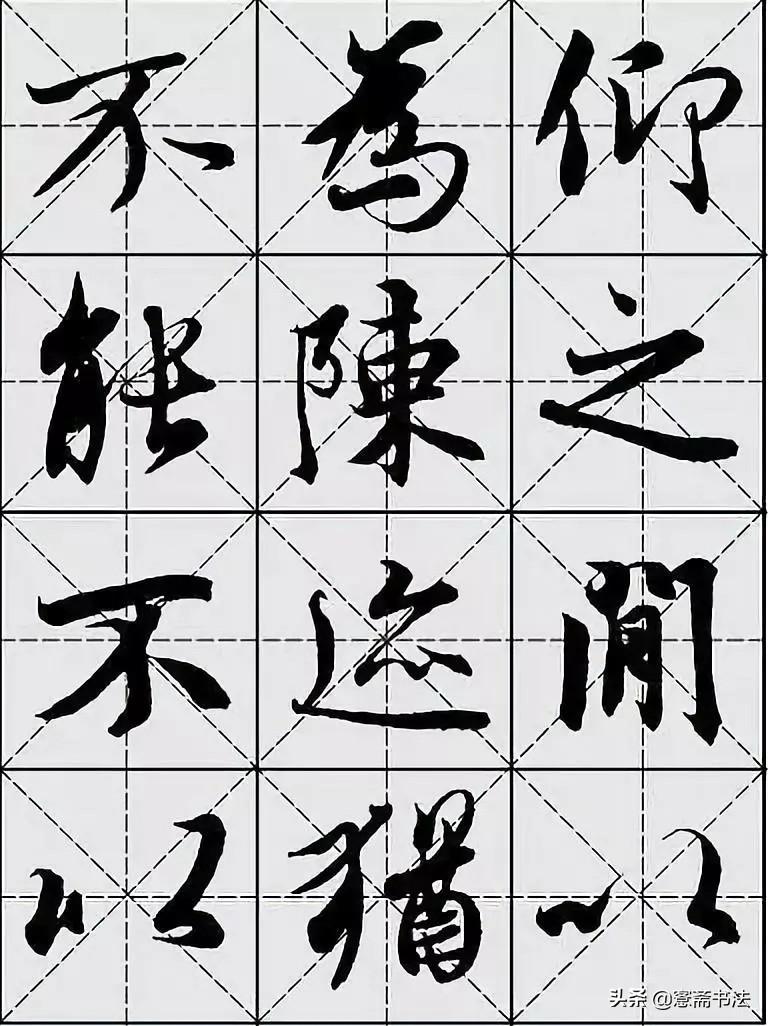 仰之閒以
為陳迹猶
不能不以
头条 @寋斋书法